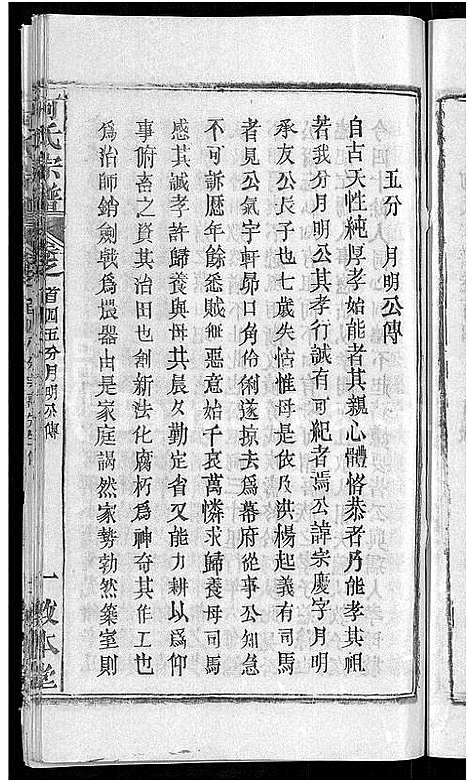 五分　月明公傳
自古天性純厚孝始能者其親心體恪恭者乃能孝其祖
若我分月明公其孝行誠有可紀者焉公諱宗慶字月明
承友公長子也七歲失怙惟母是依及洪楊起義有司馬
者見公氣宇軒昴口角伶俐遂掠去爲幕府從事公知急
不可訴歷年餘悉賊所始千哀萬憐求歸養母司馬
感其誠孝許歸養與母共晨夕勤定省又能力耕以爲仰
事俯畜之資其治田也創新法化腐朽爲神奇其作工也
爲治師銷劍戟爲農器由是家庭謁然家勢勃然築室則
氏宗譜
卷之首四五分月明公傳
一
敦本堂